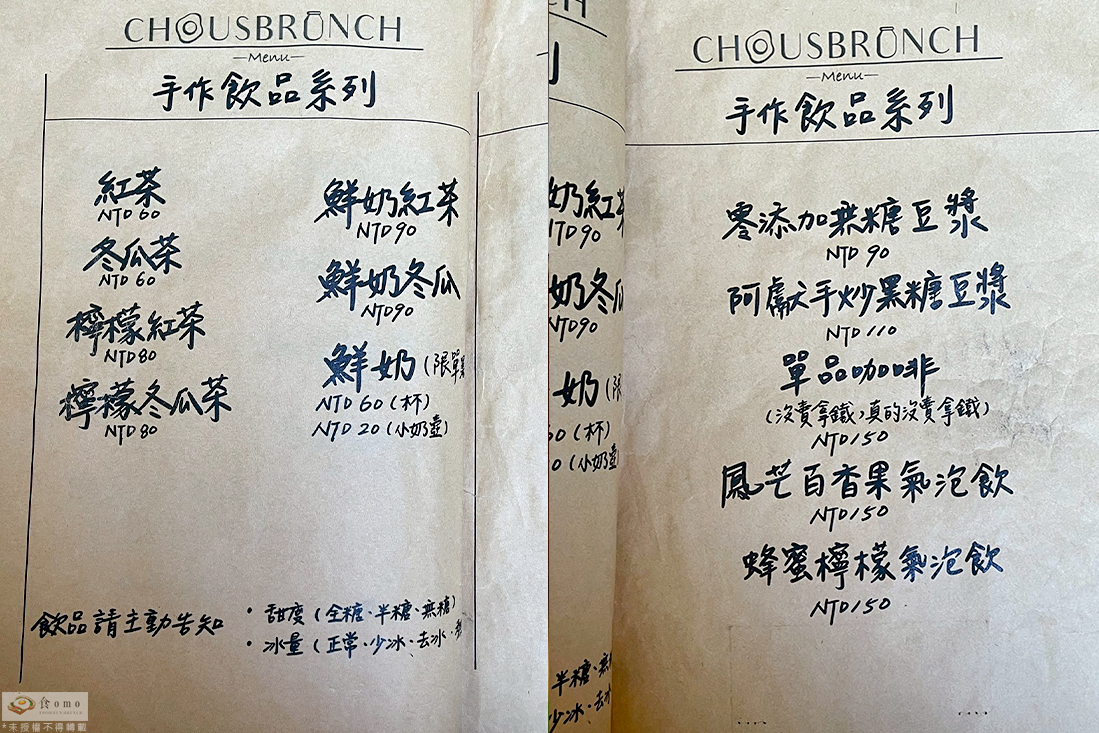 CHOUSBRUNCH
Menu
手作飲品系列
紅茶
NTD 60
冬瓜茶
NTD 60
檸檬紅茶
NTD80
檸檬冬瓜茶
NTD 80
鮮奶紅茶
NTD90
鮮奶冬瓜
NTD90
鮮奶(限單
NTD 60(杯)
NTD 20(小奶壺)
飲品請主動告知
・甜度(全糖、半糖、無糖)
・冰量(正常、少冰、去冰、
奶紅茶
NTD90
奶冬瓜
NTD90
奶(限
60(杯)
0(小奶壺)
半糖、無
少冰、去冰
CHOUSBRUNCH
Menu
手作飲品系列
零添加無糖豆漿
NTD 90
阿嬤手炒黑糖豆漿
NTD 110
單品咖啡
(沒賣拿鐵,真的沒賣拿鐵)
NTD150
鳳芒百香果氣泡飲
NTD150
蜂蜜檸檬氣泡飲
NTD150
食omo
*未授權不得轉載